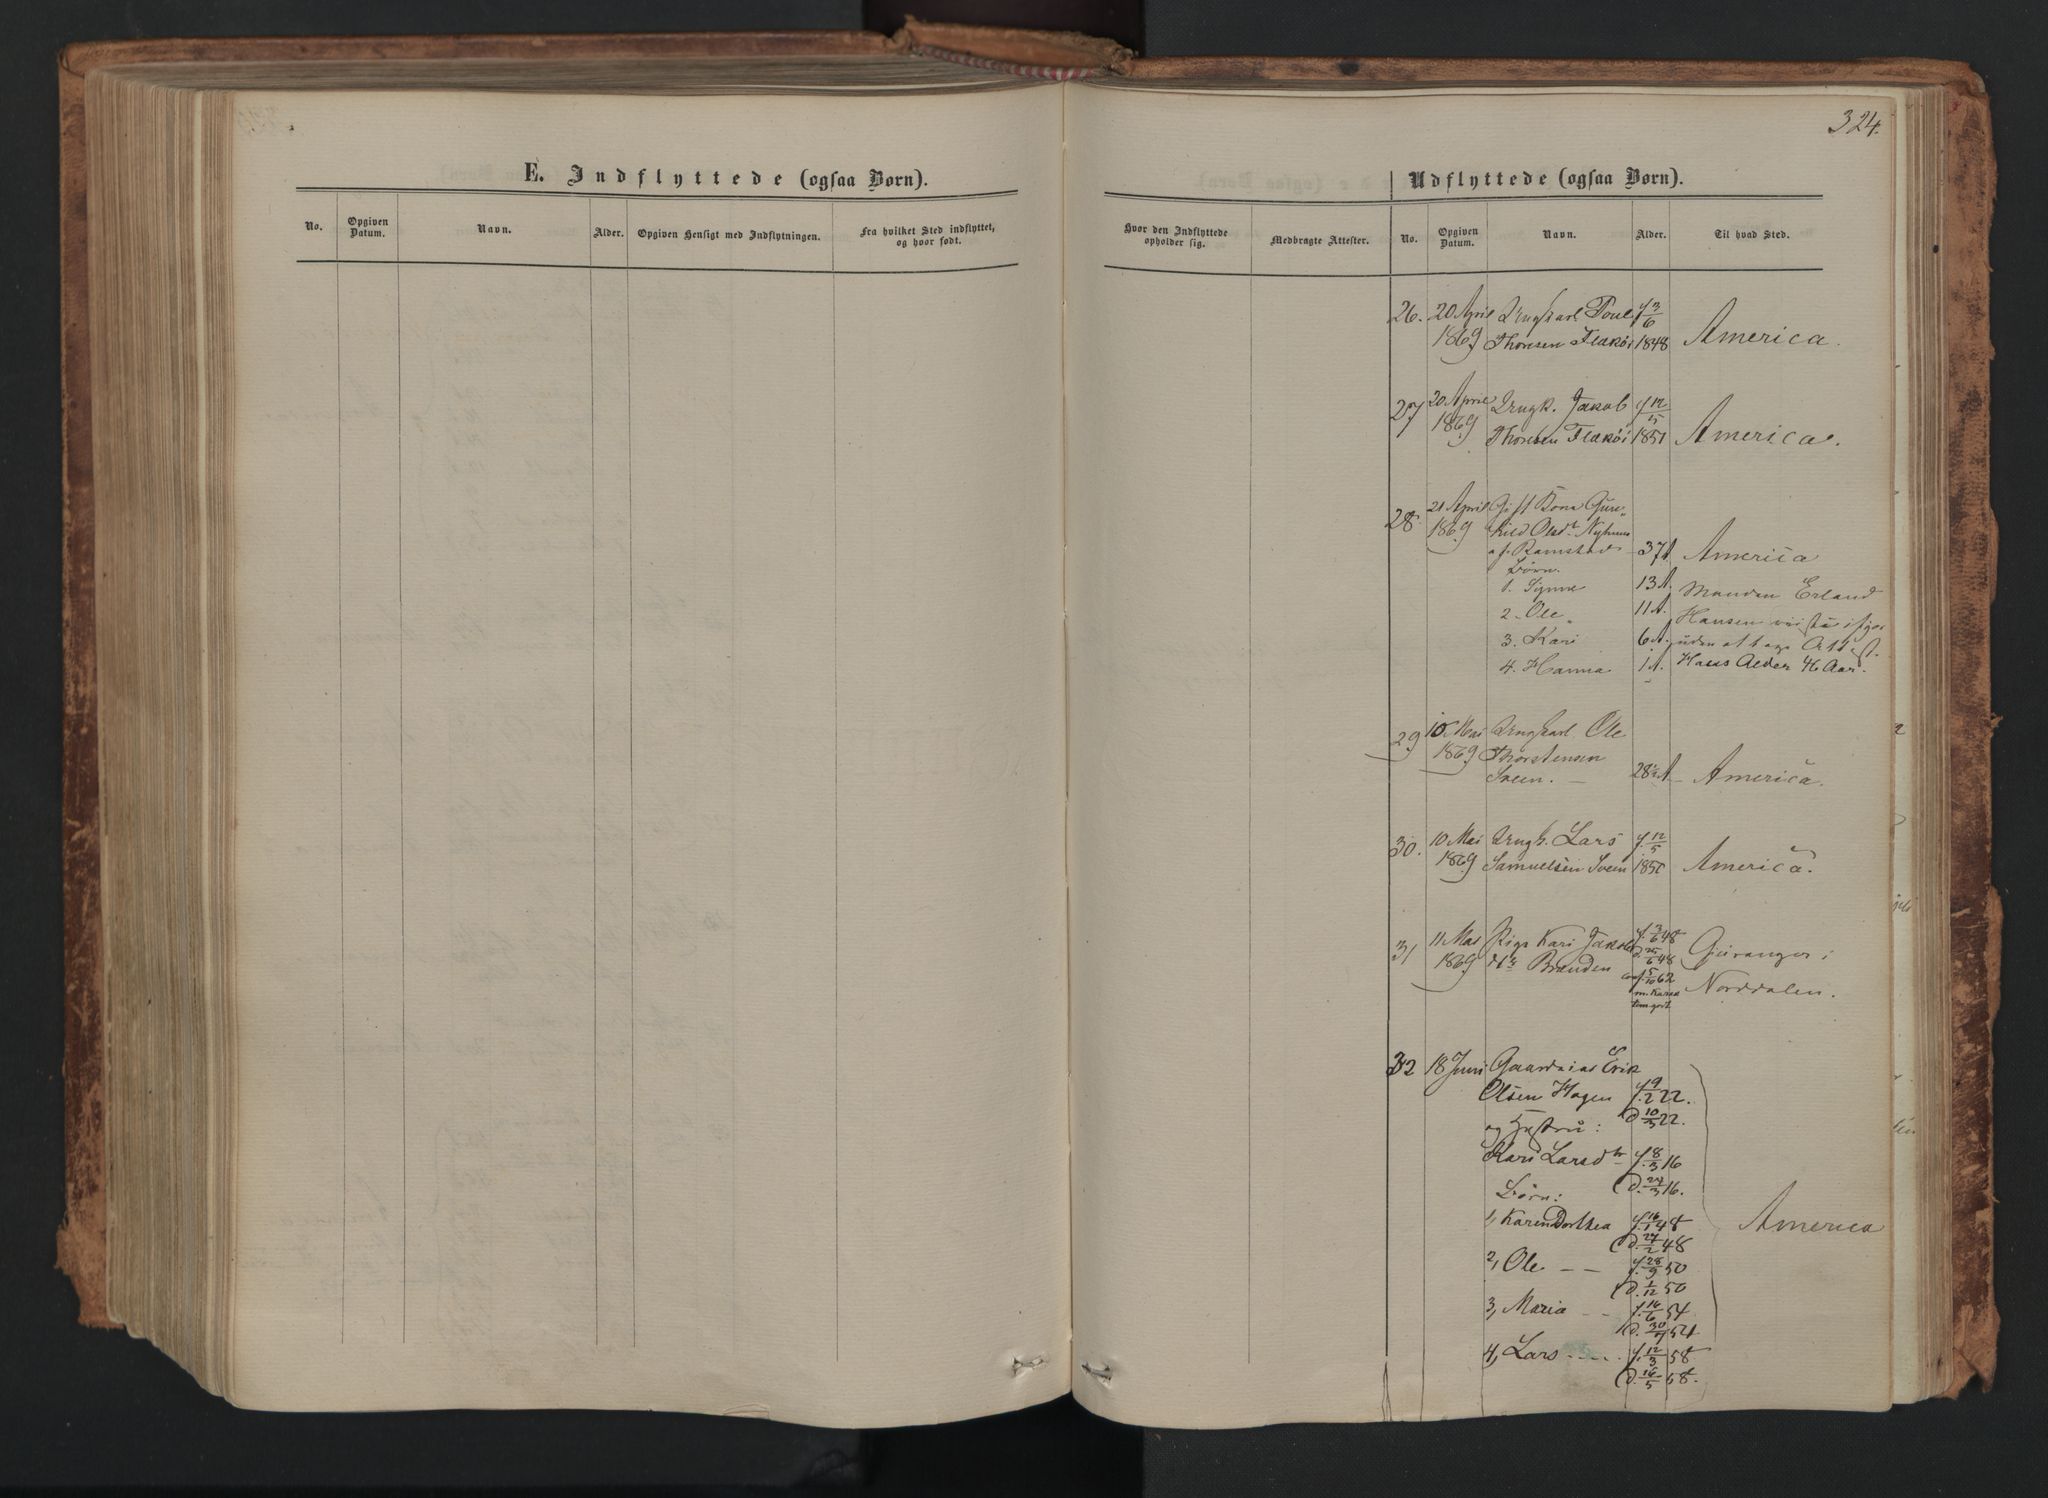 324.
E. Indflyttede (ogsaa Børn).
Udflyttede (ogsaa Børn).
No.
Opgiven Datum.
Navn.
Alder.
Opgiven Hensigt med Indflytningen.
Fra hvilket Sted indflyttet, og hvor født.
Hvor den Indflyttede opholder sig.
Medbragte Attester.
No.
Opgiven Datum.
Navn.
Alder.
Til hvad Sted.
26. 20 April Ungkarl Poul f. 3/6
1869 Thoresen Flakøi 1848 America.
27. 20 April Ungk. Jakob f. 12/5
1869 Thoresen Flakøi 1851 America.
28. 21 April Gift Kona Gun-
1869 hild Olsdt. Nyhuus
af Ramstad 37 A America
Børn.
1. Signe 13 A. Manden Erland
2. Ole 11 A. Hansen
3. Kari 6 A. uden at tage Attest.
4. Hanna 1 A. Hans Alder 46 Aar.
29 10 Mai Ungkarl Ole
1869 Thorstensen
Sveen. 28 1/2 A America.
30. 10 Mai Ungk. Lars f. 12/5
1869 Samuelsen Sveen 1850 America.
31 11 Mai Pige Kari Jakobs f. 3/6 48
1869 dtr Brænden d. 25/6 48 Geiranger i
conf. 5/10 62 Norddalen.
32 18 Juni Gaardmand Erik
Olsen Hagen f. 9/2 22.
og Hustru: d. 10/3 22.
Kari Larsdtr f. 8/3 16
Børn: d. 24/3 16.
1, Karen Dorthea f. 16/1 48 America
d. 27/2 48
2, Ole f. 28/9 50
d. 1/12 50
3, Maria f. 16/6 54
d. 30/7 54
4, Lars f. 12/3 58
d. 16/5 58.